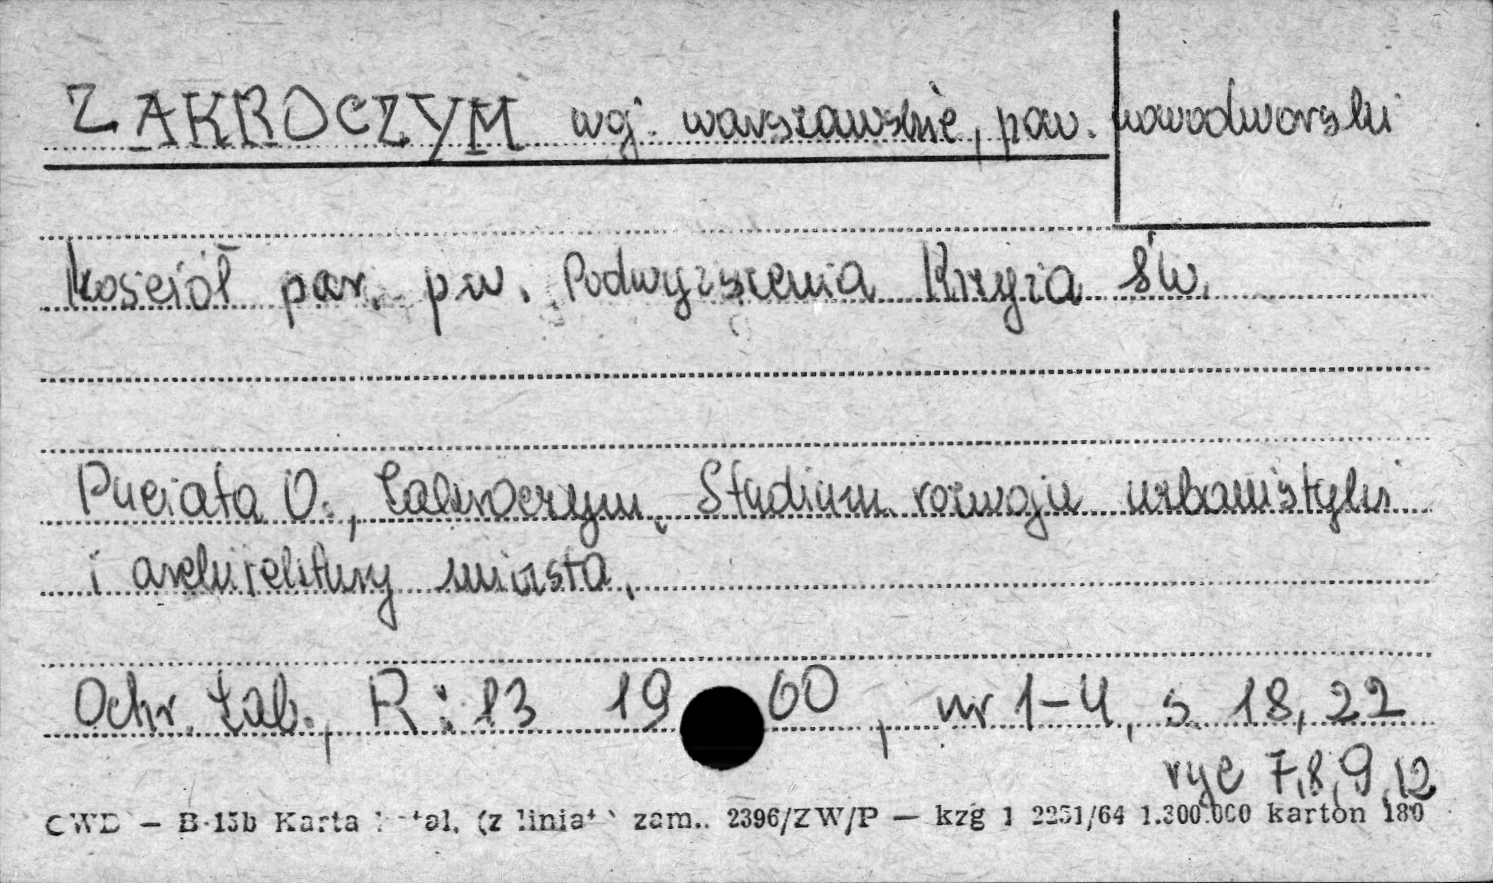 ZAKROCZYM woj. warszawskie, pow. nowodworski
Kościół par. pw. Podwyższenia Krzyża Św.
Puciata O., Zakroczym. Studium rozwoju urbanistyki
i architektury miasta.
Ochr. Zab., R: 13 1960, nr 1-4, s. 18, 22
ryc 7, 8, 9, 12
CWD - B-15b Karta (z zam. 2396/ZW/P — kzg 1 2251/64 1.300.000 karton 180